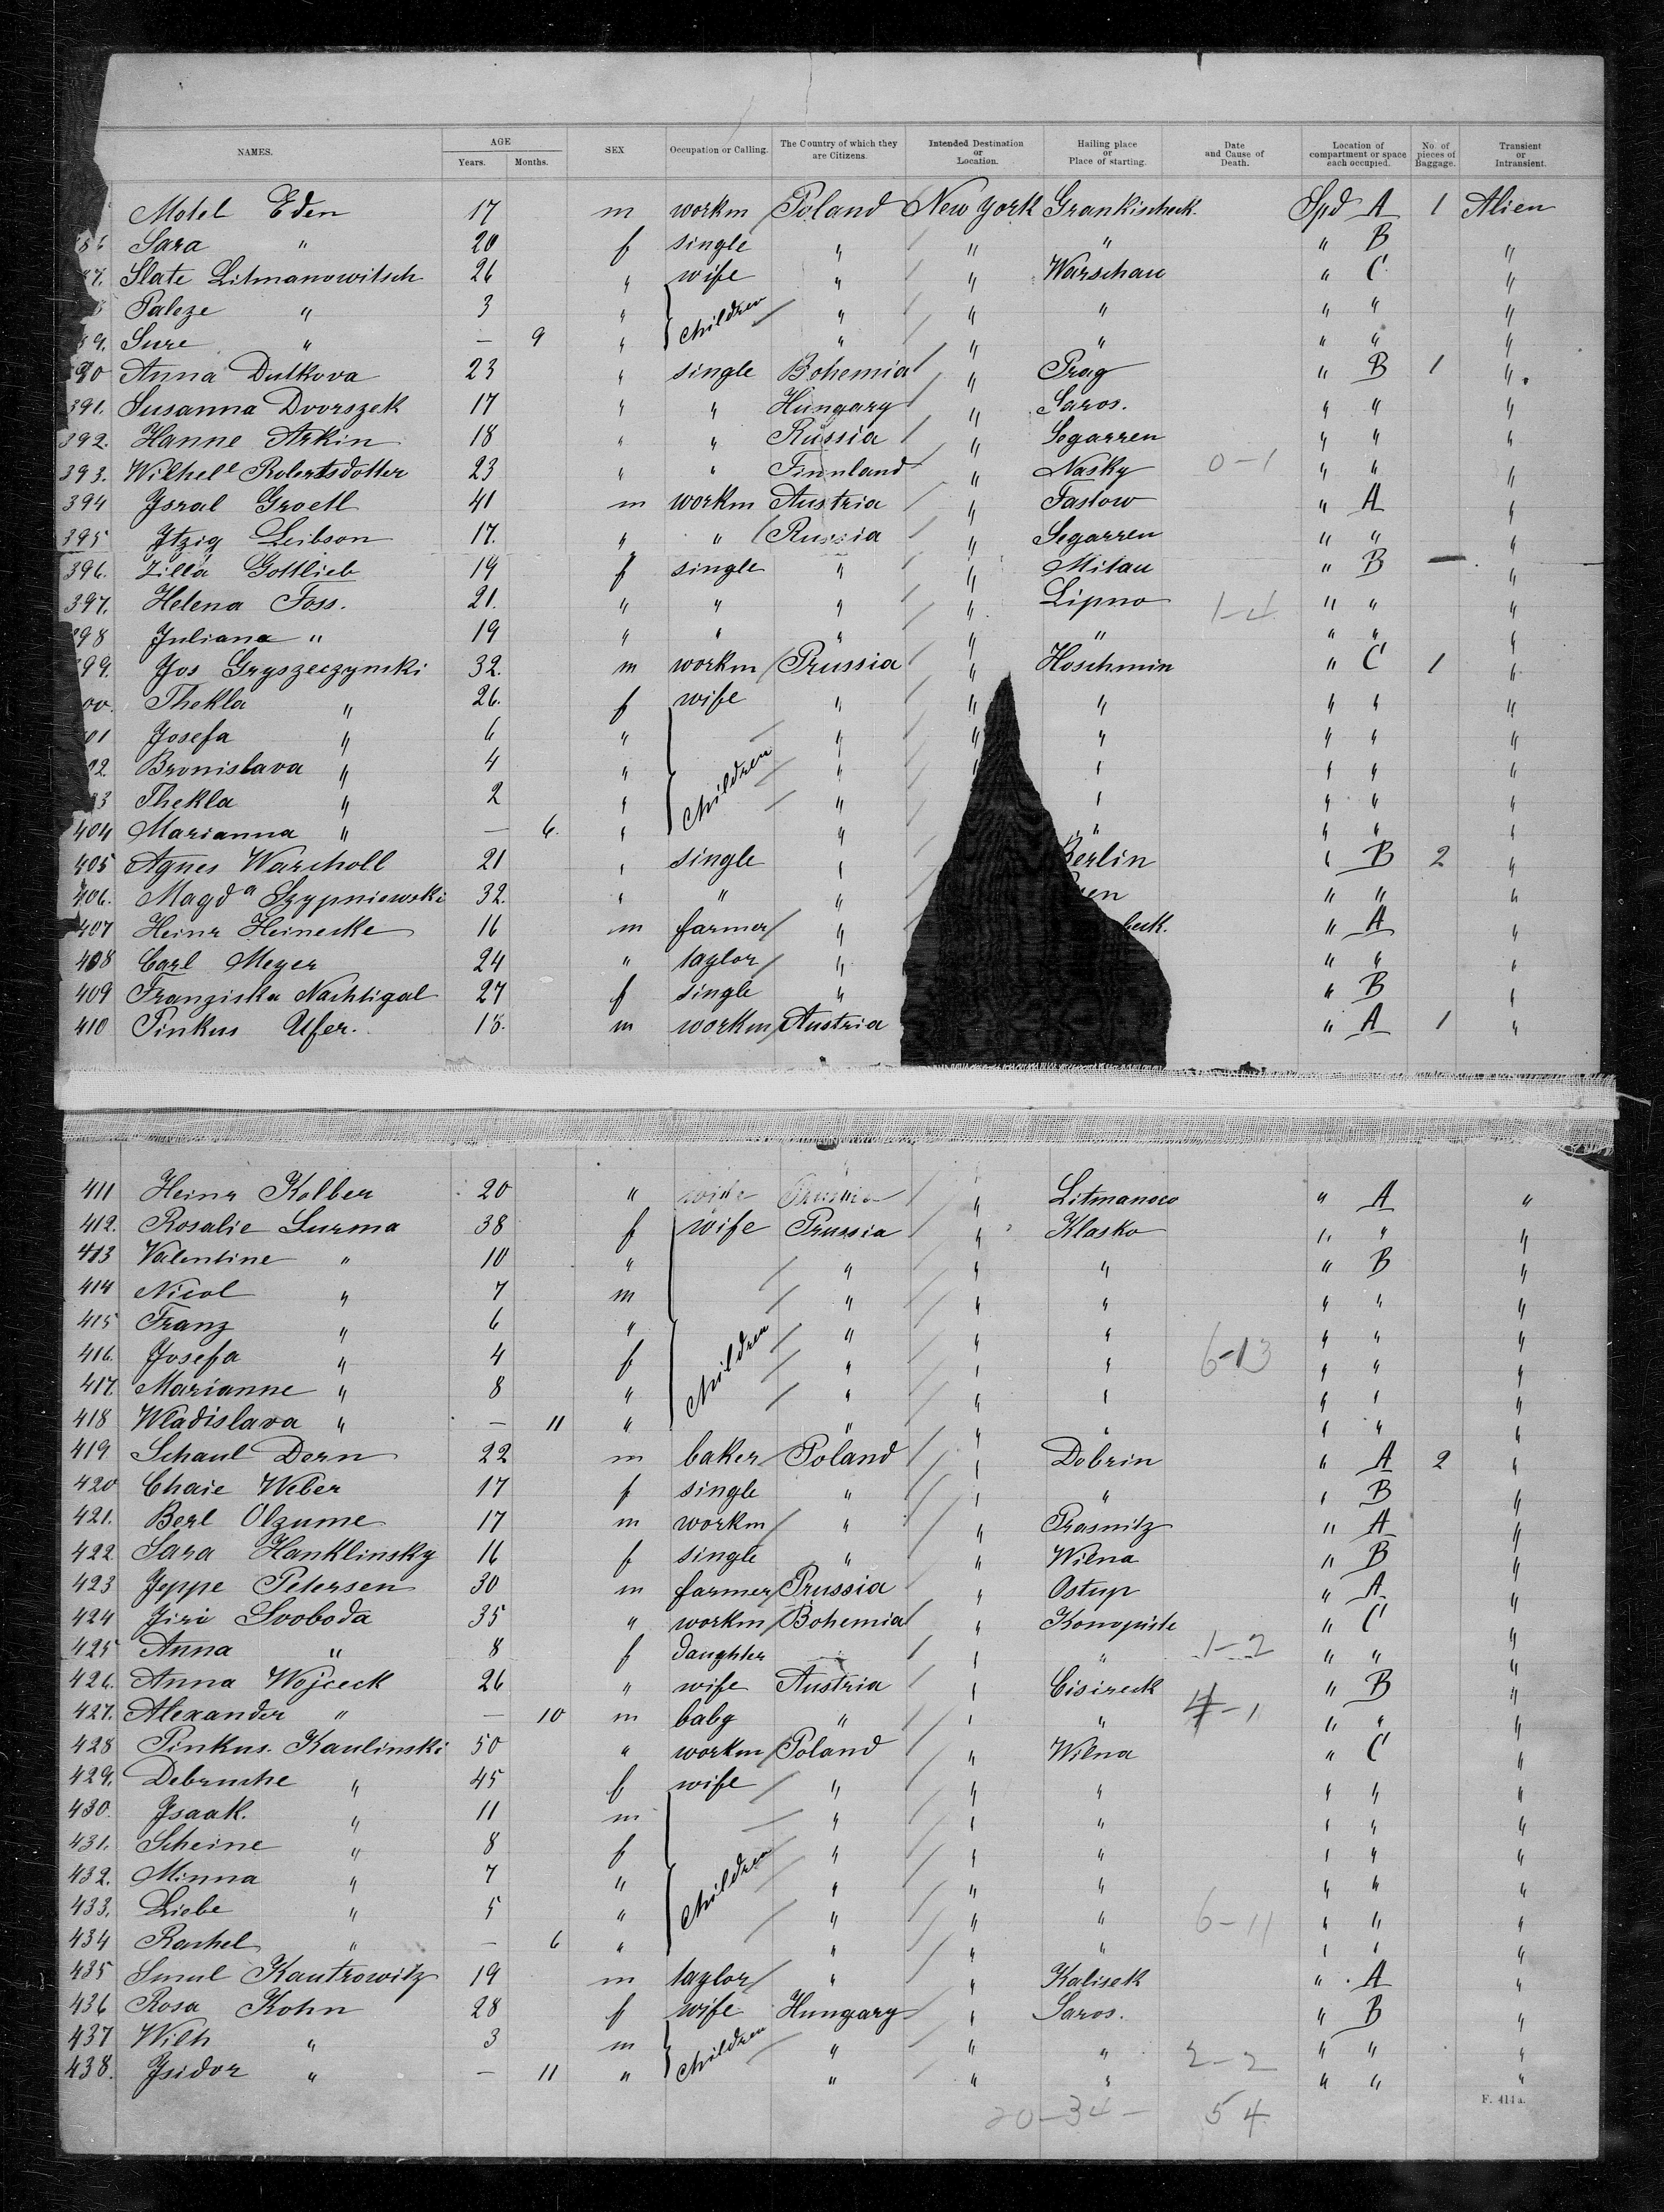 NAMES. AGE Years. Months. SEX Occupation or Calling. The Country of which they are Citizens. Intended Destination or Location. Hailing place or Place of starting. Date and Cause of Death. Location of compartment or space each occupied. No. of pieces of Baggage. Transient or Intransient.
Motel Eden 17 m workm Poland New York Grankischeck. Spd A 1 Alien
86 Sara " 20 f single " " " " B "
87. Slate Litmanowitsch 26 " wife " " Warschau " C "
Paleze " 3 " Children " " " " " "
89. Sure " — 9 " " " " " " "
390 Anna Dutkova 23 " single Bohemia " Prag " B 1 "
391. Susanna Dvorszek 17 " " Hungary " Saros. " " "
392. Hanne Arkin 18 " " Russia " Segarren " " "
393. Wilhel^e Robertsdotter 23 " " Finnland " Nasky 0-1 " " "
394 Jsral Groetl 41 m workm Austria " Tastow " A "
395 Jtzig Leibson 17. " " Russia " Segarren " " "
396. Zilla Gottlieb 19 f single " " Mitau " B — "
397. Helena Foss. 21. " " " " Lipno 1-4 " " "
398 Juliana " 19 " " " " " " " "
399. Jos Gryszeczynski 32. m workm Prussia " Hoschmin " C 1 "
00. Thekla " 26. f wife " " " " " "
01 Josefa " 6 " " " " " " "
02 Bronislava " 4 " Children " " " " " "
03 Thekla " 2 " " " " " "
404 Marianna " — 6. " " " " " "
405 Agnes Warcholl 21 " single " Berlin " B 2 "
406. Magd^a Szypniewski 32. " " " " " "
407 Heinr Heinecke 16 m farmer " beck. " A "
408 Carl Meyer 24 " taylor " " " "
409 Franziska Nachtigal 27 f single " " B "
410 Pinkus Ufer. 18. m workm Austria " A 1 "
411 Heinr Kolber 20 " " Litmanow " A "
412. Rosalie Surma 38 f wife Prussia " Klasko " " "
413 Valentine " 10 " " " " " B "
414 Nicol " 7 m " " " " " "
415 Franz " 6 " " " " " " "
416. Josefa " 4 f Children " " " 6-13 " " "
417. Marianne " 8 " " " " " " "
418 Wladislava " — 11 " " " " " " "
419 Schaul Dorn 22 m baker Poland " Dobrin " A 2 "
420 Chaie Weber 17 f single " " " " B "
421. Berl Olzume 17 m workm " " Prasnitz " A "
422 Sara Hanklinsky 16 f single " " Wilna " B "
423 Jeppe Petersen 30 m farmer Prussia " Ostup " A "
424 Jiri Svoboda 35 " workm Bohemia " Konopiste " C "
425 Anna " 8 f daughter " " " 1-2 " " "
426. Anna Wojceck 26 " wife Austria " Cisireck " B "
427. Alexander " — 10 m baby " " " -1 " " "
428 Pinkus. Kaulinski 50 " workm Poland " Wilna " C "
429. Debrusche " 45 f wife " " " " " "
430. Jsaak. " 11 m " " " " " "
431. Scheine " 8 f " " " " " "
432. Minna " 7 " Children " " " " " "
433. Liebe " 5 " " " " 6-11 " " "
434 Rachel " — 6 " " " " " " "
435 Smul Kautrowitz 19 m taylor " " Kalisck " A "
436 Rosa Kohn 28 f wife Hungary " Saros. " B "
437 Wilh " 3 m Children " " " 2-2 " " "
438. Jsidor " — 11 " " " " " " "
20-34- 54
F. 411a.